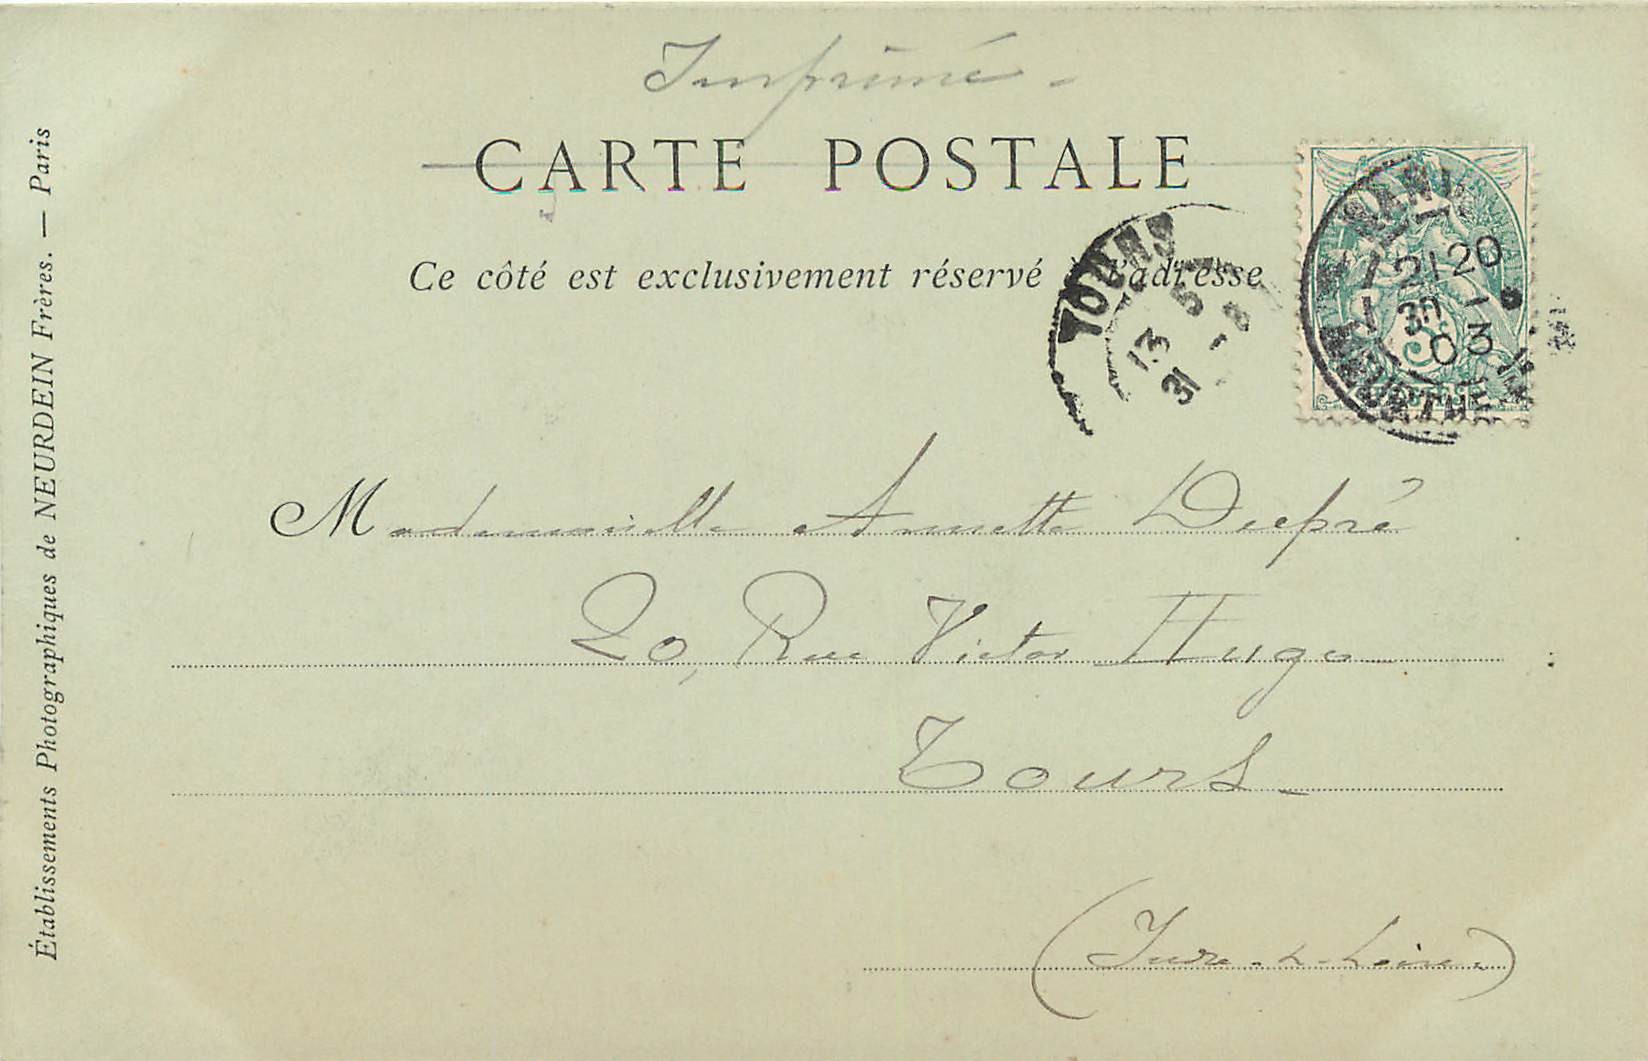 Imprimé -
CARTE POSTALE
Ce côté est exclusivement réservé à l'adresse
TOURS
13 5
31 -8
21 20
30 -1
03
5
Mademoiselle Annette Dupré
20, Rue Victor Hugo
Tours -
(Indre-&-Loire)
Établissements Photographiques de NEURDEIN Frères. — Paris